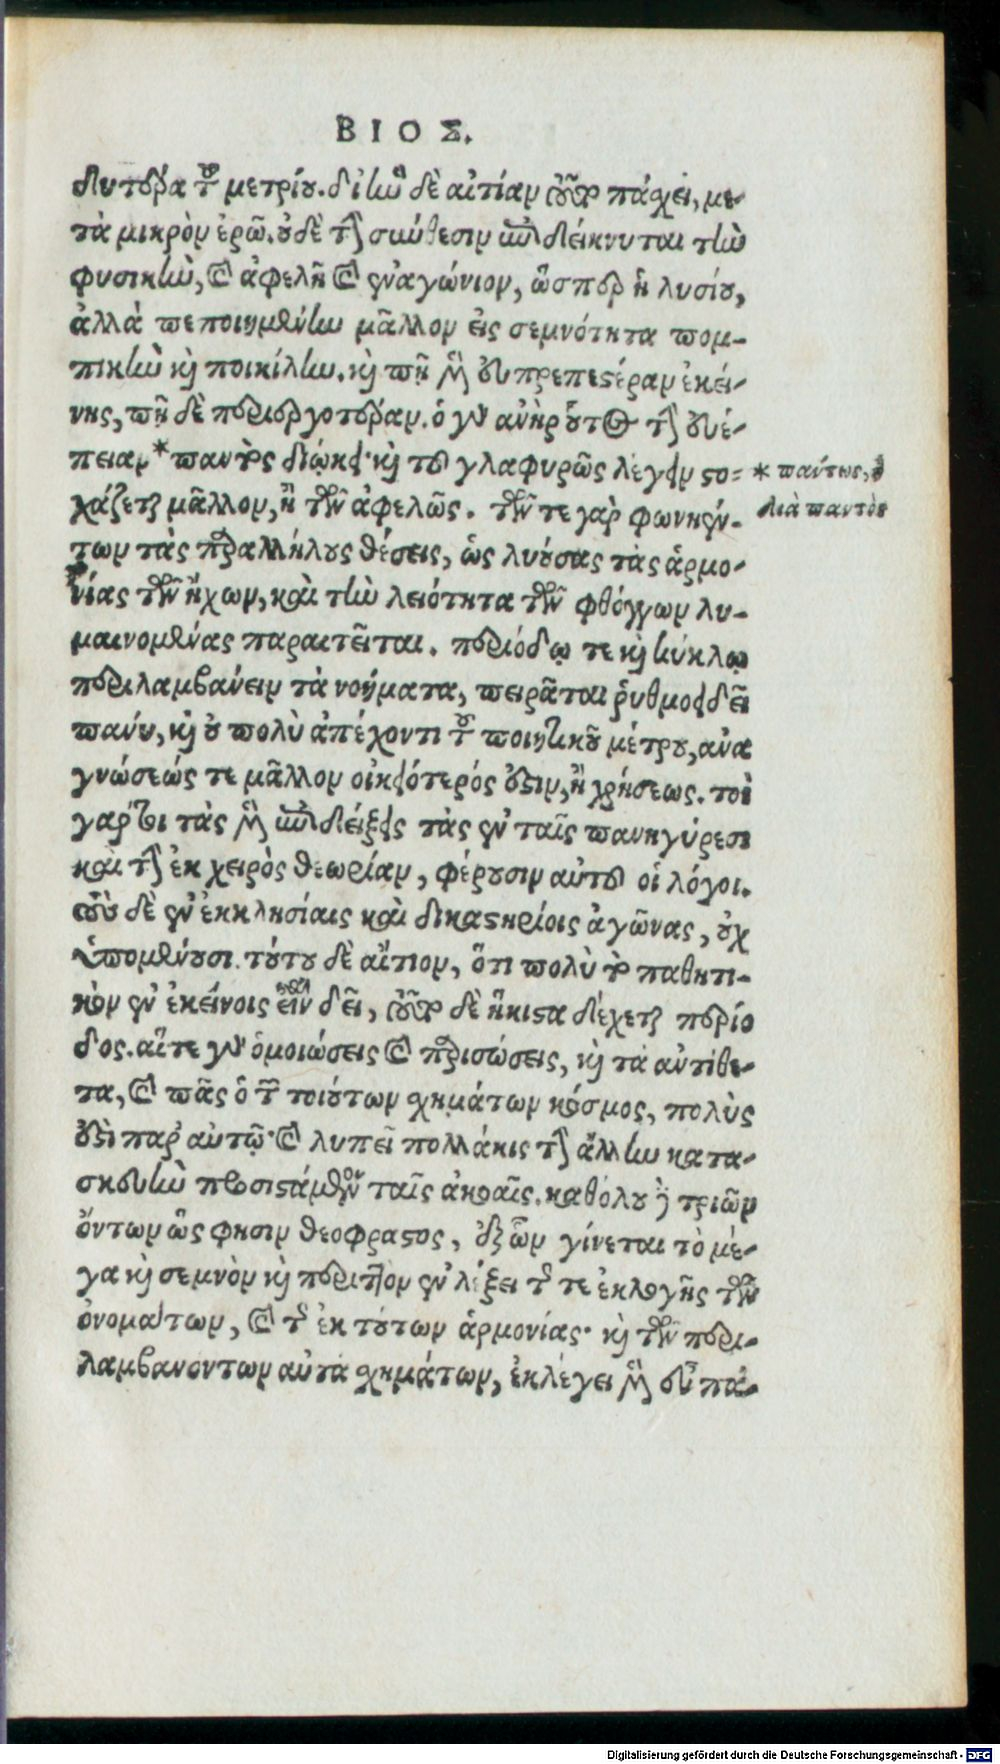 ΒΙΟΣ.
δυτέρα τοῦ μετρίου. δι' ἣν δὲ αἰτίαν τοῦτο πάσχει, με-
τὰ μικρὸν ἐρῶ. οὐδὲ τὴν σύνθεσιν ἐπιδείκνυται τὴν
φυσικὴν, καὶ ἀφελῆ καὶ ἐναγώνιον, ὥσπερ ἡ λυσίου,
ἀλλὰ πεποιημένην μᾶλλον εἰς σεμνότητα πομ-
πικὴν καὶ ποικίλην. καὶ πῆ μὲν εὐπρεπεστέραν ἐκεί-
νης, πῆ δὲ περιεργοτέραν. ὁ γὰρ ἀνὴρ οὗτος τὴν εὐέ-
πειαν * παντὸς διώκει· καὶ τοῦ γλαφυρῶς λέγειν στο-
* πάντως, ἢ
διὰ παντὸς
χάζεται μᾶλλον, ἢ τοῦ ἀφελῶς. τῶν τε γὰρ φωνηέν-
των τὰς παραλλήλους θέσεις, ὡς λυούσας τὰς ἁρμο-
νίας τῶν ἤχων, καὶ τὴν λειότητα τῶν φθόγγων λυ-
μαινομένας παραιτεῖται. περιόδῳ τε καὶ κύκλῳ
περιλαμβάνειν τὰ νοήματα, πειρᾶται ῥυθμοειδεῖ
πάνυ, καὶ οὐ πολὺ ἀπέχοντι τοῦ ποιητικοῦ μέτρου, ἀνα
γνώσεώς τε μᾶλλον οἰκειότερός ἐστιν, ἢ χρήσεως. τοι
γάρτοι τὰς μὲν ἐπιδείξεις τὰς ἐν ταῖς πανηγύρεσι
καὶ τὴν ἐκ χειρὸς θεωρίαν, φέρουσιν αὐτοῦ οἱ λόγοι.
τοὺς δὲ ἐν ἐκκλησίαις καὶ δικαστηρίοις ἀγῶνας, οὐχ
ὑπομένουσι. τούτου δὲ αἴτιον, ὅτι πολὺ τὸ παθητι-
κὸν ἐν ἐκείνοις εἶναι δεῖ, τοῦτο δὲ ἥκιστα δέχεται περίο
δος. αἵ τε γὰρ ὁμοιώσεις καὶ παρισώσεις, καὶ τὰ ἀντίθε-
τα, καὶ πᾶς ὁ τῶν τοιούτων σχημάτων κόσμος, πολύς
ἐστὶ παρ' αὐτῷ· καὶ λυπεῖ πολλάκις τὴν ἄλλην κατα-
σκευὴν προσιστάμενον ταῖς ἀκοαῖς. καθόλου δὲ τριῶν
ὄντων ὥς φησιν θεόφραστος, ἐξ ὧν γίνεται τὸ μέ-
γα καὶ σεμνὸν καὶ περιττὸν ἐν λέξει τῆς τε ἐκλογῆς τῶν
ὀνομάτων, καὶ τῆς ἐκ τούτων ἁρμονίας· καὶ τῶν περι-
λαμβανοντων αὐτὰ σχημάτων, ἐκλέγει μὲν εὖ πά-
Digitalisierung gefördert durch die Deutsche Forschungsgemeinschaft - DFG